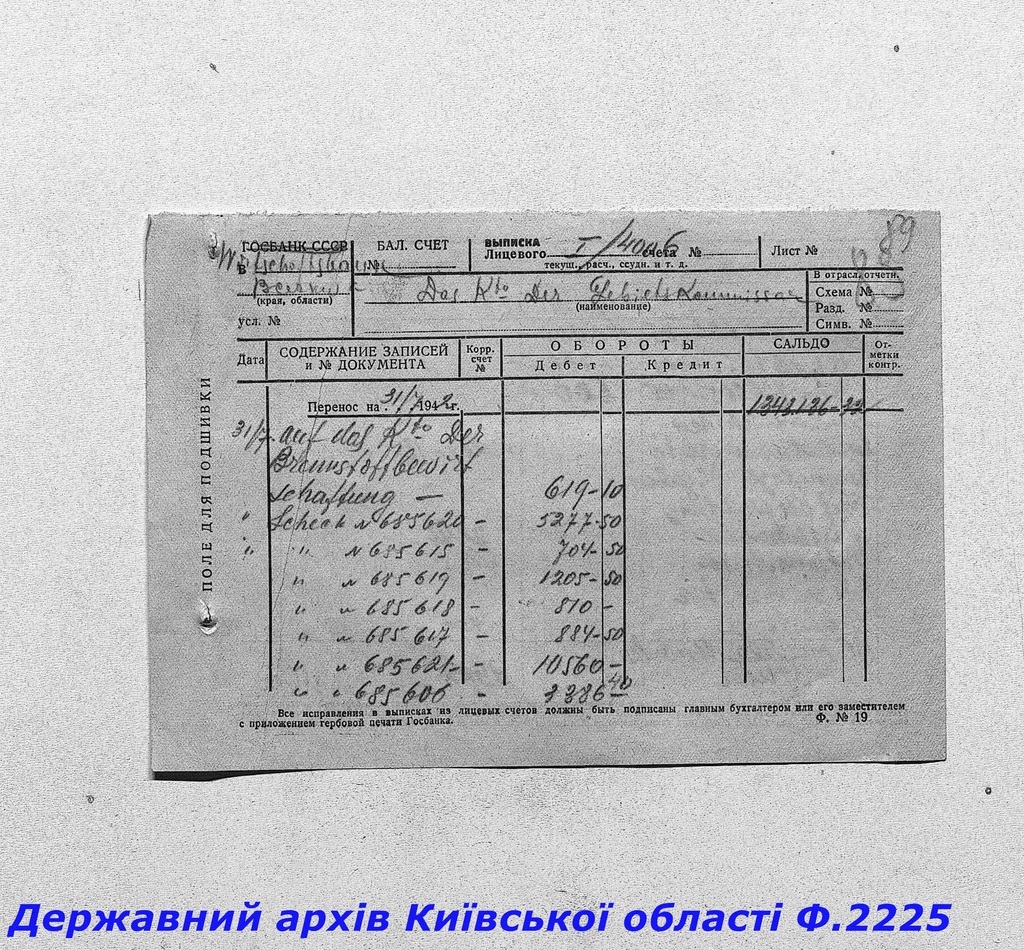 89
ГОСБАНК СССР
БАЛ. СЧЕТ
ВЫПИСКА
Лицевого I/4006 счета №
текущ., расч., ссудн. и т. д.
Лист №
в
№
(края, области)
усл. №
Das Kto Der Gebietskommissar
(наименование)
В отрасл. отчетн.
Схема №
Разд. №
Симв. №
Дата
СОДЕРЖАНИЕ ЗАПИСЕЙ и № ДОКУМЕНТА
Корр. счет №
ОБОРОТЫ
Дебет
Кредит
САЛЬДО
От-метки контр.
ПОЛЕ ДЛЯ ПОДШИВКИ
Перенос на 31/7 1942 г. 1343.136-23
31/7 auf das Kto Der
Brennstoffbewirt
schaftung — 619-10
" Scheck № 685620 - 5277-50
" " № 685615 - 704-50
" № 685619 - 1205-50
" № 685618 - 810 -
" № 685617 - 884-50
" № 685621 - 10560 -
" " 685606 - 3386-40
Все исправления в выписках из лицевых счетов должны быть подписаны главным бухгалтером или его заместителем
с приложением гербовой печати Госбанка.
Ф. № 19
Державний архів Київської області Ф.2225